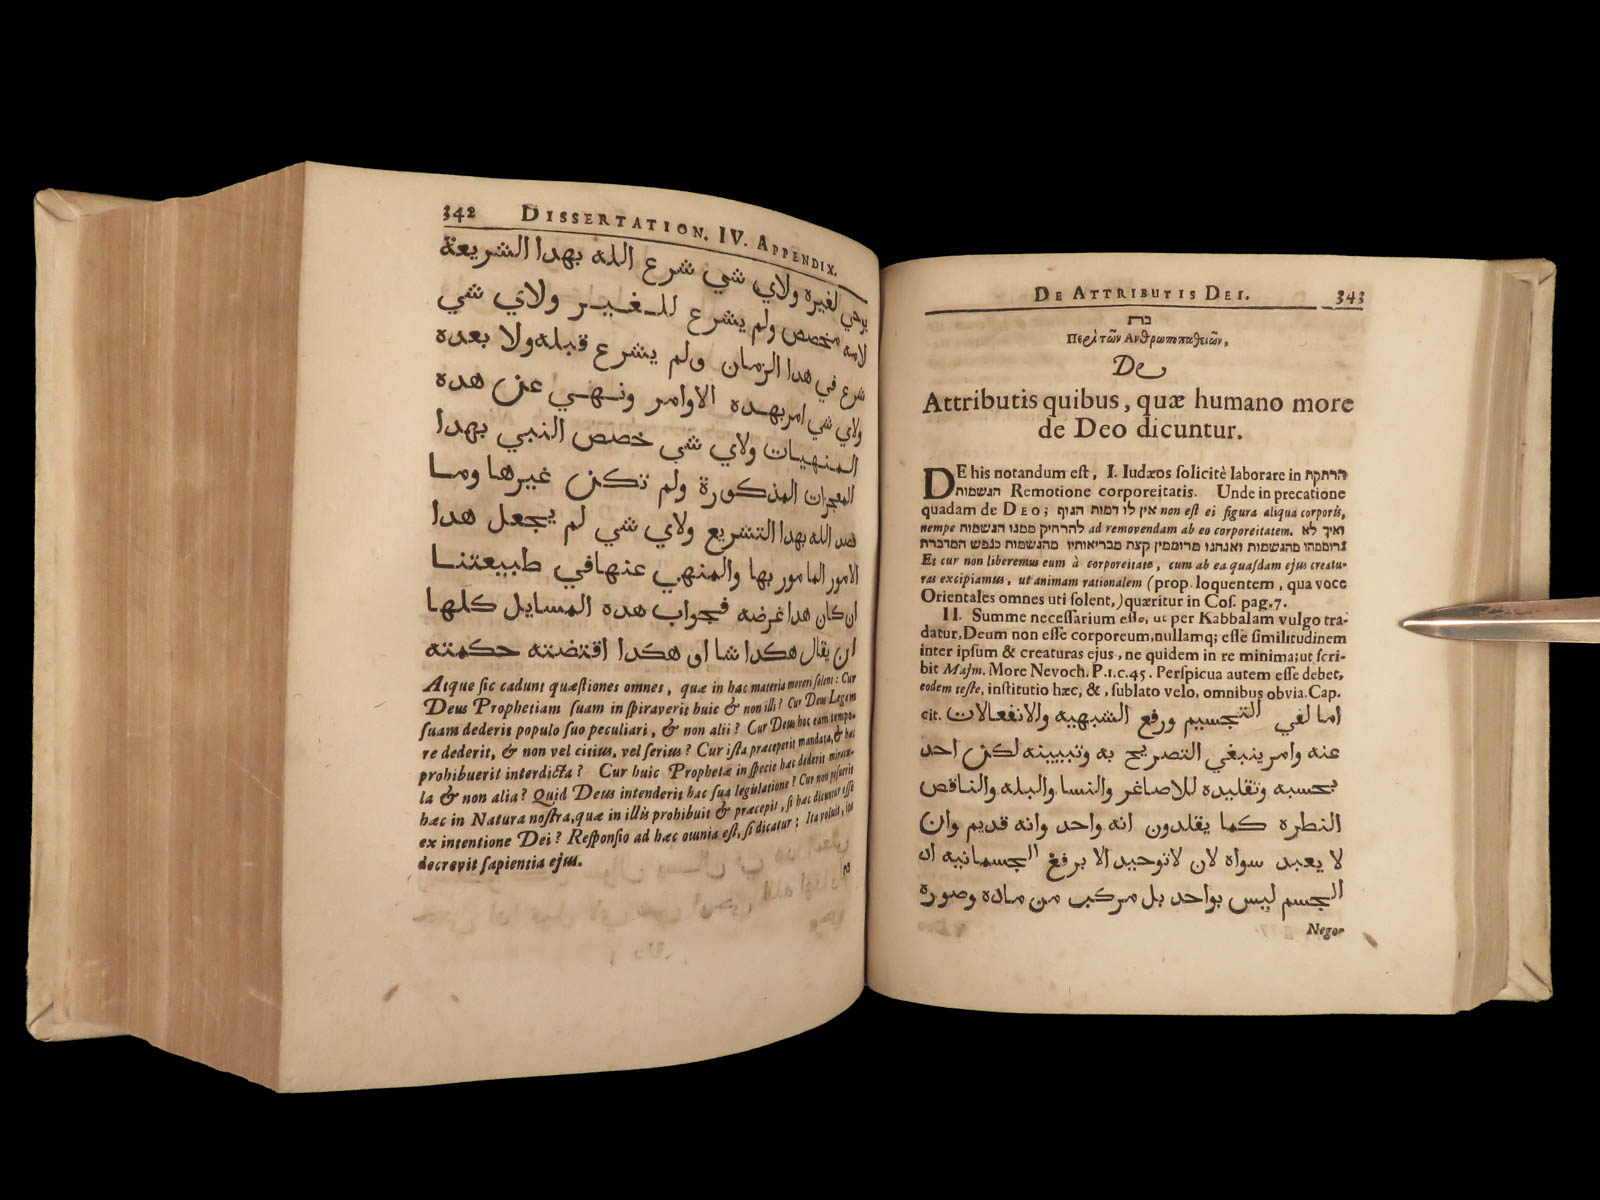 342 DISSERTATION. IV. APPENDIX.
يوحي لغيره ولاي شي شرع الله بهدا الشريعة
لامه مخصص ولم يشرع للغير ولاي شي
شرع في هدا الزمان ولم يشرع قبله ولا بعده
ولاي شي امر بهده الاوامر ونهي عن هده
المنهيات ولاي شي خصص النبي بهدا
المعجزات المذكورة ولم تكن غيرها وما
قصد الله بهدا التشريع ولاي شي لم يجعل هدا
الامور المامور بها والمنهي عنها في طبيعتنا
ان كان هدا غرضه فجواب هده المسايل كلها
ان يقال هكدا شا او هكدا اقتضته حكمته
Atque sic cadunt quæstiones omnes, quæ in hac materia moveri solent: Cur
Deus Prophetiam suam inspiraverit huic & non illi? Cur Deus Legem
suam dederit populo suo peculiari, & non alii? Cur Deus hoc eam tempo-
re dederit, & non vel citius, vel serius? Cur ista præceperit mandata, & hæc
prohibuerit interdicta? Cur huic Prophetæ in specie hæc dederit miracu-
la & non alia? Quid Deus intenderit hac sua legislatione? Cur non posuerit
hæc in Natura nostra, quæ in illis prohibuit & præcepit, si hæc dicuntur esse
ex intentione Dei? Responsio ad hæc omnia est, si dicatur: Ita voluit, ita
decrevit sapientia ejus.
DE ATTRIBUTIS DEI. 343
כח
Περὶ τῶν Ανθρωποπαθειῶν,
De
Attributis quibus, quæ humano more
de Deo dicuntur.
DE his notandum est, I. Iudæos solicitè laborare in הרחקת
הגשמות Remotione corporeitatis. Unde in precatione
quadam de DEO; אין לו דמות הגוף non est ei figura aliqua corporis,
nempe להרחיק ממנו הגשמות ad removendam ab eo corporeitatem. ואיך לא
נרוממהו מהגשמות ואנחנו מרוממין קצת מבריאותיו מהגשמות כנפש המדברת
Et cur non liberemus eum à corporeitate, cum ab ea quasdam ejus creatu-
ras excipiamus, ut animam rationalem (prop. loquentem, qua voce
Orientales omnes uti solent,) quæritur in Cos. pag. 7.
II. Summe necessarium esse, ut per Kabbalam vulgo tra-
datur, Deum non esse corporeum, nullamq; esse similitudinem
inter ipsum & creaturas ejus, ne quidem in re minima; ut scri-
bit Majm. More Nevoch. P. 1. c. 45. Perspicua autem esse debet,
eodem teste, institutio hæc, &, sublato velo, omnibus obvia. Cap.
cit. اما لفي التجسيم ورفع الشبهيه والانفعالات
عنه وامر ينبغي التصريح به وتبيينه لكن احد
بحسبه وتقليده للاصاغر والنسا والبله والناقص
النطره كما يقلدون انه واحد وانه قديم وان
لا يعبد سواه لان لاتوحيد الا برفع الجسمانيه اد
الجسم ليس بواحد بل مركب من ماده وصوره
Negor